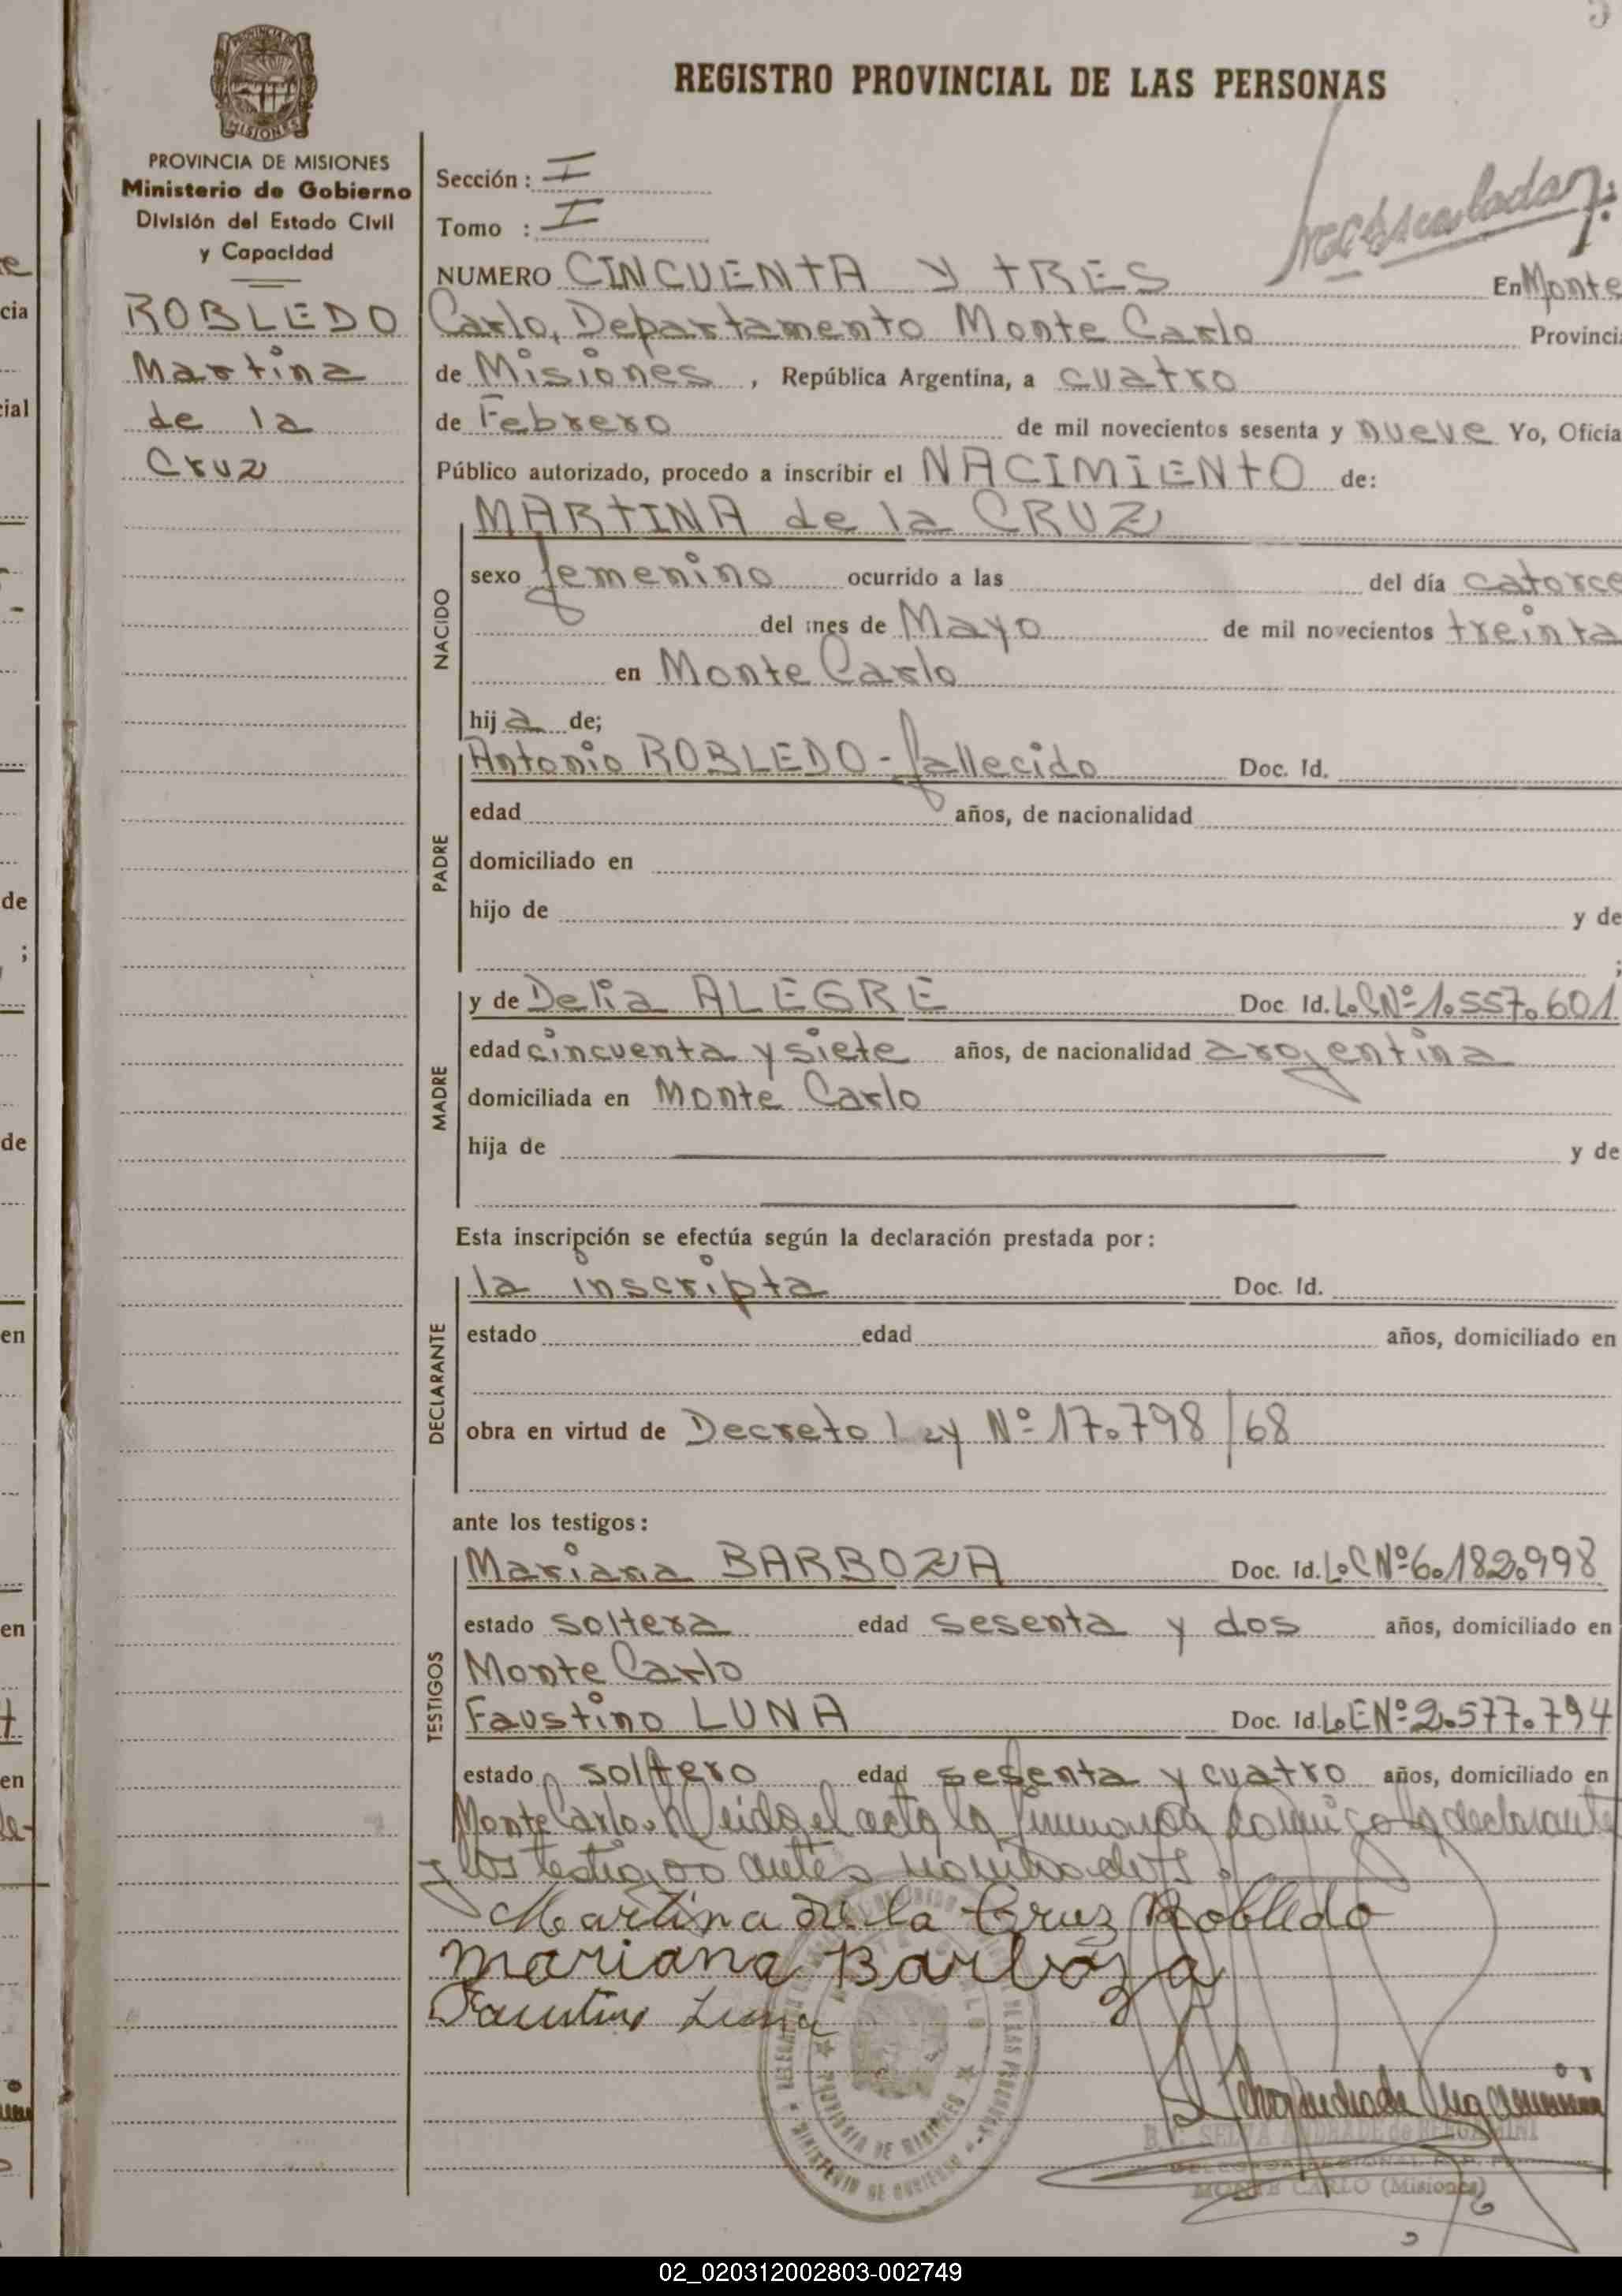 REGISTRO PROVINCIAL DE LAS PERSONAS
MISIONES
PROVINCIA DE MISIONES
Ministerio de Gobierno
División del Estado Civil
y Capacidad
ROBLEDO
Martina
de la
Cruz
Sección: I
Tomo : I
NUMERO CINCUENTA Y TRES En Monte
Carlo, Departamento Monte Carlo Provinci
de Misiones, República Argentina, a cuatro
de Febrero de mil novecientos sesenta y nueve Yo, Oficia
Público autorizado, procedo a inscribir el NACIMIENTO de:
NACIDO
MARTINA de la CRUZ
sexo femenino ocurrido a las del día catorce
del mes de Mayo de mil novecientos treinta
en Monte Carlo
hij a de;
PADRE
Antonio ROBLEDO - fallecido Doc. Id.
edad años, de nacionalidad
domiciliado en
hijo de y de
;
MADRE
y de Delia ALEGRE Doc. Id. L.C Nº 1.557.601
edad cincuenta y siete años, de nacionalidad argentina
domiciliada en Monte Carlo
hija de y de
Esta inscripción se efectúa según la declaración prestada por:
DECLARANTE
la inscripta Doc. Id.
estado edad años, domiciliado en
obra en virtud de Decreto Ley Nº 17.798/68
ante los testigos:
TESTIGOS
Mariana BARBOZA Doc. Id. L.C Nº 6.182.998
estado soltera edad sesenta y dos años, domiciliado en
Monte Carlo
Faustino LUNA Doc. Id. L.E Nº 2.577.794
estado soltero edad sesenta y cuatro años, domiciliado en
Monte Carlo. Leida el acta la firman conmigo la declarante
y los testigos antes nombrados.
Martina de la Cruz Robledo
Mariana Barboza
Faustino Luna
PROVINCIA DE MISIONES
MINISTERIO DE GOBIERNO
SELVA ANDRADE de BERGAMINI
MONTE CARLO (Misiones)
02_020312002803-002749